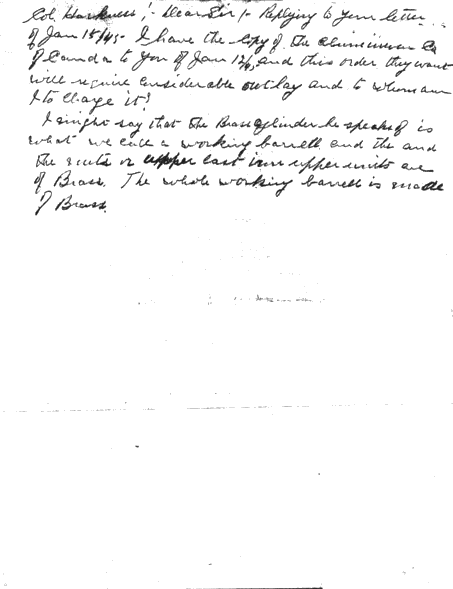 Col. Harkness! - Dear Sir/- Replying to your letter
of Jan 18/45- I have the copy of the Aluminum Co
of Canada to you of Jan 12/, and this order they want
will require considerable outlay and to whom am
I to charge it?
I might say that the Brass cylinder he speaks of is
what we call a working barrell and the and
the or upper cast iron upper units are
of Brass. The whole working barrell is made
of Brass.